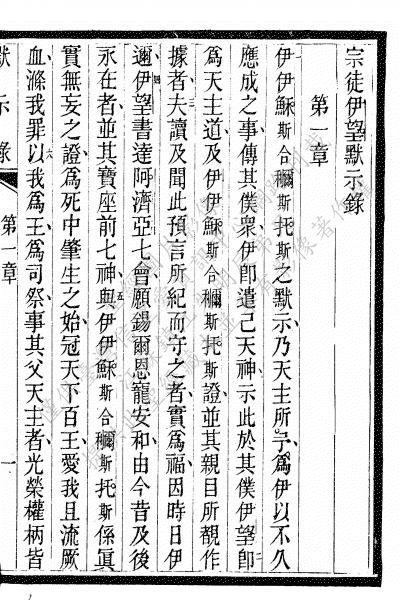 宗徒伊望默示錄
第一章
伊伊穌斯合穪斯托斯之默示乃天主所予爲伊以不久
應成之事傳其僕衆伊卽遣己天神示此於其僕伊望卽
爲天主道及伊伊穌斯合穪斯托斯證並其親目所覩作
據者夫讀及聞此預言所紀而守之者實爲福因時日伊
邇伊望書達阿濟亞七會願錫爾恩寵安和由今昔及後
永在者並其寶座前七神與伊伊穌斯合穪斯托斯係眞
實無妄之證爲死中肇生之始冠天下百王愛我且流厥
血滌我罪以我爲王爲司祭事其父天主者光榮權柄皆
默示錄
第一章
一